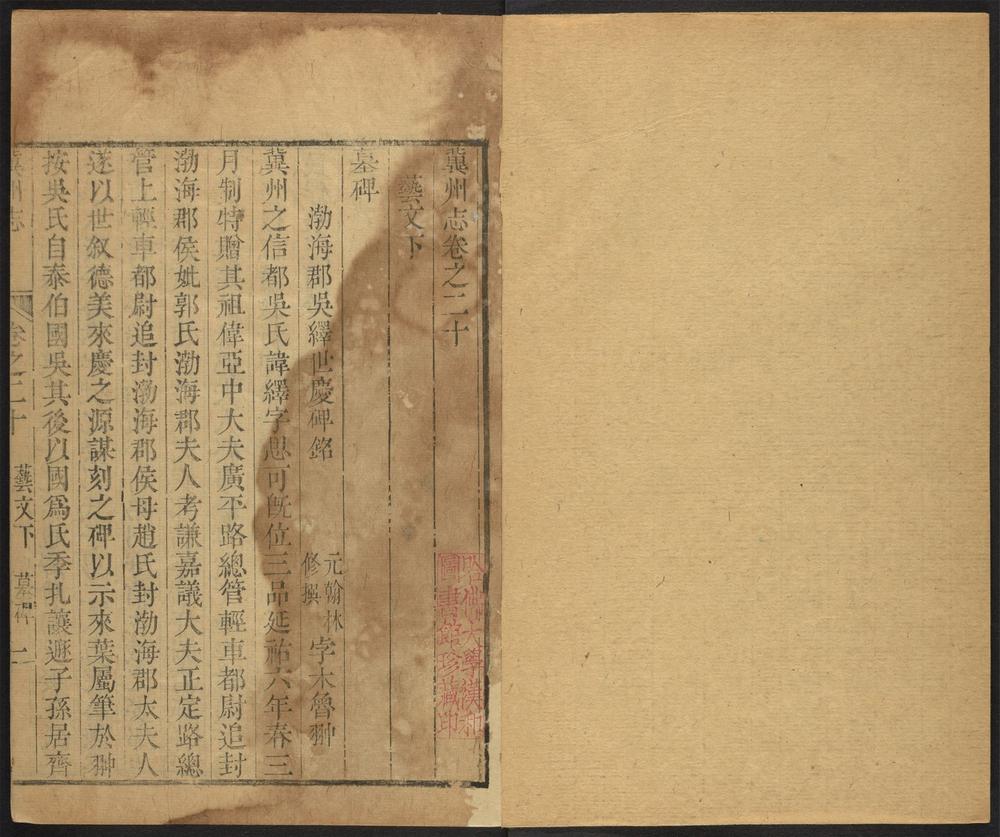 冀州志卷之二十
藝文下
墓碑
渤海郡吳繹世慶碑銘 元翰林修撰 字木魯翀
冀州之信都吳氏諱繹字思可既位三品延祐六年春三
月制特贈其祖偉亞中大夫廣平路總管輕車都尉追封
渤海郡侯妣郭氏渤海郡夫人考謙嘉議大夫正定路總
管上輕車都尉追封渤海郡侯母趙氏封渤海郡太夫人
遂以世叙德美來慶之源謀刻之碑以示來葉屬筆於翀
按吳氏自泰伯國吳其後以國爲氏季扎讓遯子孫居齊
冀州志 卷之二十 藝文下 墓碑 一
哈佛大學漢和
圖書館珍藏印